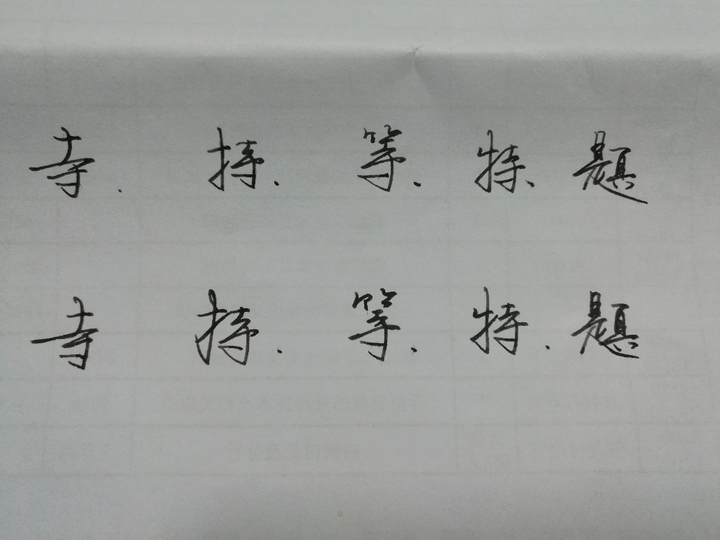 寺. 持. 等. 特、题
寺 持. 等. 特. 题